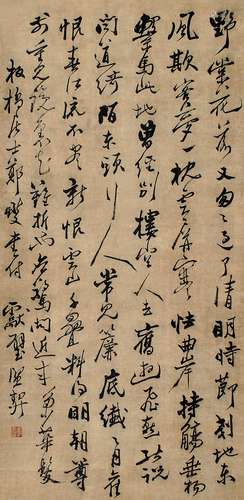 野棠花落又匆匆過了清明時節剗地東
風欺客夢一枕雲屏寒怯曲岸持觴垂楊
繫馬此地曾經別樓空人去舊遊飛燕能說
聞道綺陌東頭行人常見簾底纖纖月舊
恨春江流不盡新恨雲山千疊料得明朝尊
前重見鏡裏花難折也應驚問近來多少華髮
板橋居士鄭燮書付 獻璧賢